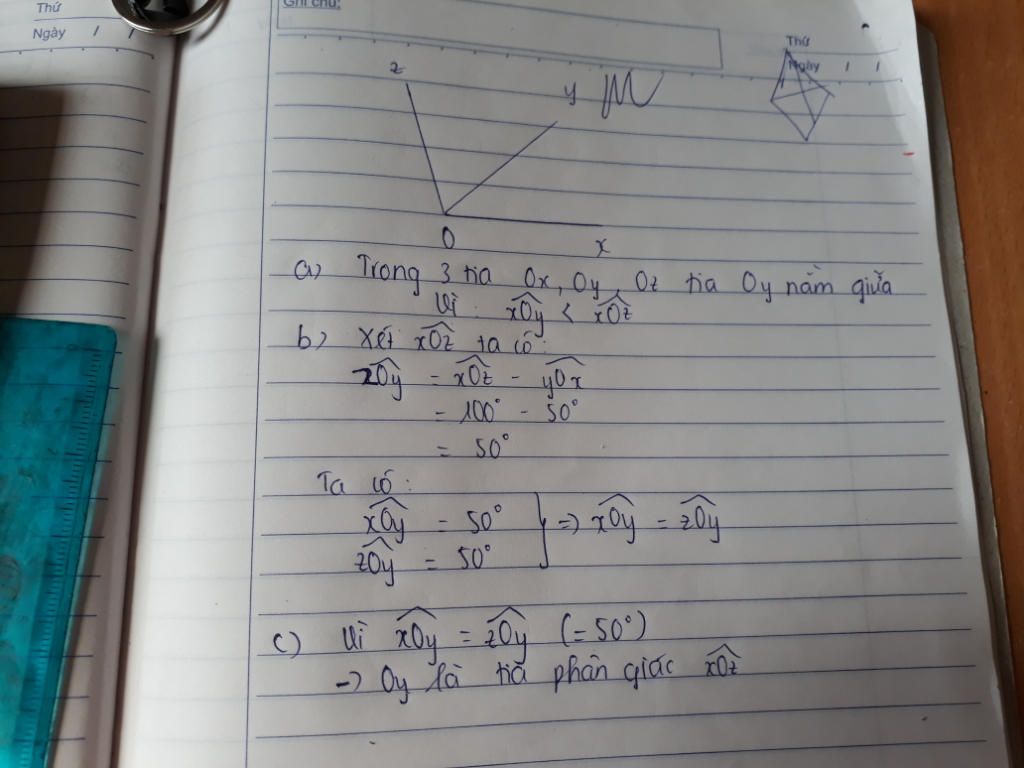 Thứ
Ngày / /
Ghi chú:
Thứ
Ngày / /
z
y
M
O
x
a) Trong 3 tia Ox, Oy, Oz tia Oy nằm giữa
Vì : xOy < xOz
b) Xét xOz ta có:
zOy = xOz - yOx
= 100° - 50°
= 50°
Ta có:
xOy = 50°
zOy = 50°
} => xOy = zOy
c) Vì xOy = zOy (= 50°)
-> Oy là tia phân giác xOz